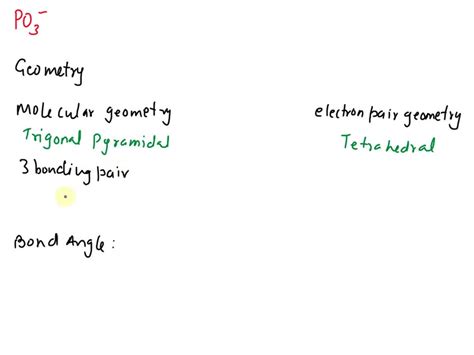 PO₃⁻
Geometry
Molecular geometry
electron pair geometry
Trigonal Pyramidal
Tetrahedral
3 bonding pair
Bond Angle: